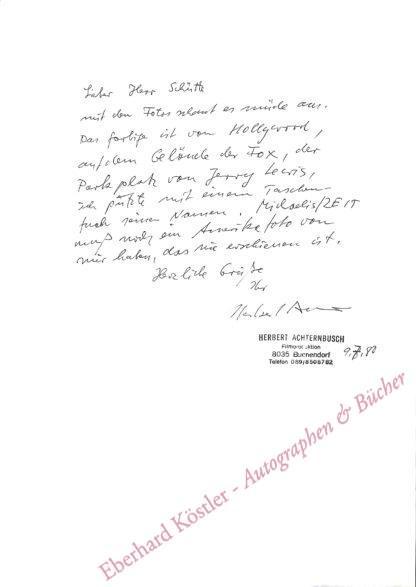 Lieber Herr Schütte
mit den Fotos schaut es müde aus.
Das farbige ist von Hollywood,
auf dem Gelände der Fox, der
Parkplatz von Jerry Lewis,
ich putzte mit einem Taschen-
tuch seinen Namen. Michaelis/ZEIT
muß noch ein Amerikafoto von
mir haben, das nie erschienen ist.
Herzliche Grüße
Ihr
Herbert Achternbusch
HERBERT ACHTERNBUSCH
Filmproduktion
8035 Buchendorf
Telefon 089/8508782
9.7.80
Eberhard Köstler - Autographen & Bücher